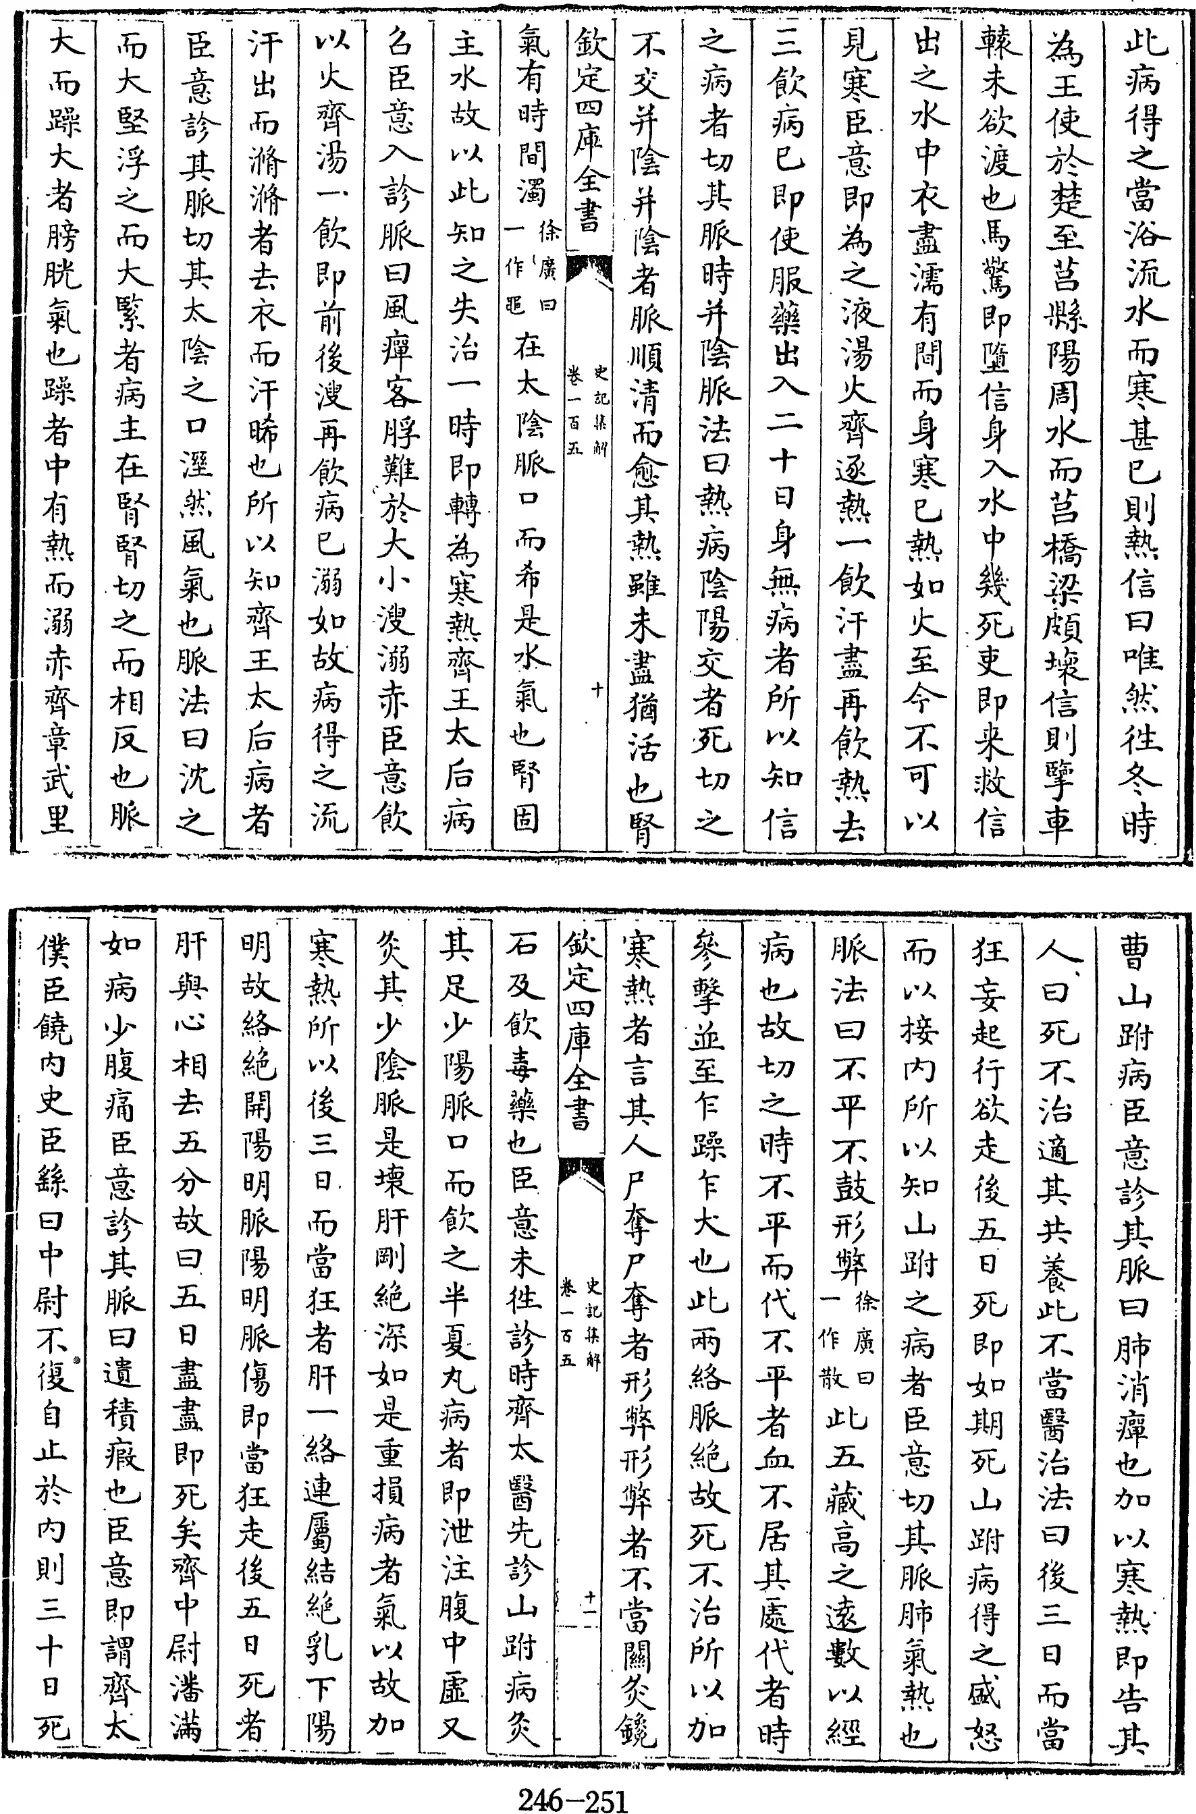 此病得之當浴流水而寒甚已則熱信曰唯然往冬時
為王使於楚至莒縣陽周水而莒橋梁頗壞信則擥車
轅未欲渡也馬驚即墮信身入水中幾死吏即来救信
出之水中衣盡濡有間而身寒已熱如火至今不可以
見寒臣意即為之液湯火齊逐熱一飲汗盡再飲熱去
三飲病已即使服藥出入二十日身無病者所以知信
之病者切其脈時并陰脈法曰熱病陰陽交者死切之
不交并陰并陰者脈順清而愈其熱雖未盡猶活也腎
欽定四庫全書
史記集解
卷一百五
十
氣有時間濁徐廣曰一作黽在太陰脈口而希是水氣也腎固
主水故以此知之失治一時即轉為寒熱齊王太后病
召臣意入診脈曰風癉客脬難於大小溲溺赤臣意飲
以火齊湯一飲即前後溲再飲病已溺如故病得之流
汗出而滫滫者去衣而汗晞也所以知齊王太后病者
臣意診其脈切其太陰之口溼然風氣也脈法曰沈之
而大堅浮之而大緊者病主在腎腎切之而相反也脈
大而躁大者膀胱氣也躁者中有熱而溺赤齊章武里
曹山跗病臣意診其脈曰肺消癉也加以寒熱即告其
人曰死不治適其共養此不當醫治法曰後三日而當
狂妄起行欲走後五日死即如期死山跗病得之盛怒
而以接内所以知山跗之病者臣意切其脈肺氣熱也
脈法曰不平不鼓形弊徐廣曰一作散此五藏高之遠數以經
病也故切之時不平而代不平者血不居其處代者時
參擊並至乍躁乍大也此兩絡脈絶故死不治所以加
寒熱者言其人尸奪尸奪者形弊形弊者不當關灸鑱
欽定四庫全書
史記集解
卷一百五
十一
石及飲毒藥也臣意未往診時齊太醫先診山跗病灸
其足少陽脈口而飲之半夏丸病者即泄注腹中虛又
灸其少陰脈是壞肝剛絶深如是重損病者氣以故加
寒熱所以後三日而當狂者肝一絡連屬結絶乳下陽
明故絡絶開陽明脈陽明脈傷即當狂走後五日死者
肝與心相去五分故曰五日盡盡即死矣齊中尉潘滿
如病少腹痛臣意診其脈曰遺積瘕也臣意即謂齊太
僕臣饒内史臣繇曰中尉不復自止於内則三十日死
246-251